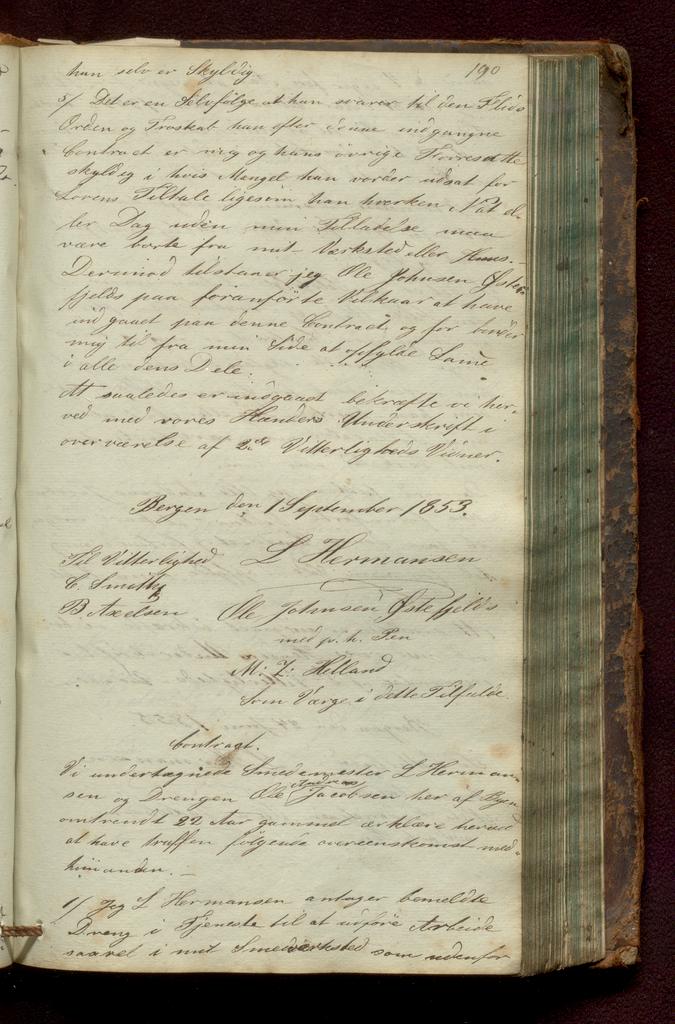 190
han selv er Skyldig
5/ Det er en Selvfølge at han svarer til den Flids
Orden og Troskab han efter denne indgangne
Contract er mig og hans øvrige Foresatte
skyldig i hvis Mangel han vorder udsat for
Lovens Tiltale ligesom han hverken Nat el-
ler Dag uden min Tilladelse maa
være borte fra mit Værksted eller Huus.-
Dermed tilstaaer jeg Ole Johnsen Øste-
fjelds paa foranførte Vilkaar at have
indgaaet paa denne Contract og forbinder
mig til fra min Side at opfylde Samme
i alle dens Dele.
At saaledes er indgaaet bekræfte vi her-
ved med vores Hænders Underskrift i
overværelse af 2de Vitterligheds Vidner.
Bergen den 1 September 1853.
Til Vitterlighed L Hermansen
C. Smith
B Axelsen Ole Johnsen Østefjelds
med p. h. Pen
M. Z. Helland
som Værge i dette Tilfælde
Contract.
Vi undertegnede Smedemester L Herman-
sen og Drengen Ole Andreas Jacobsen her af Byen
omtrendt 22 Aar gammel erklære herved
at have truffen følgende overeenskomst med
hinanden.-
1/ Jeg L Hermansen antager bemeldte
Dreng i Tjeneste til at udføre Arbeide
saavel i mit Smedværksted som udenfor